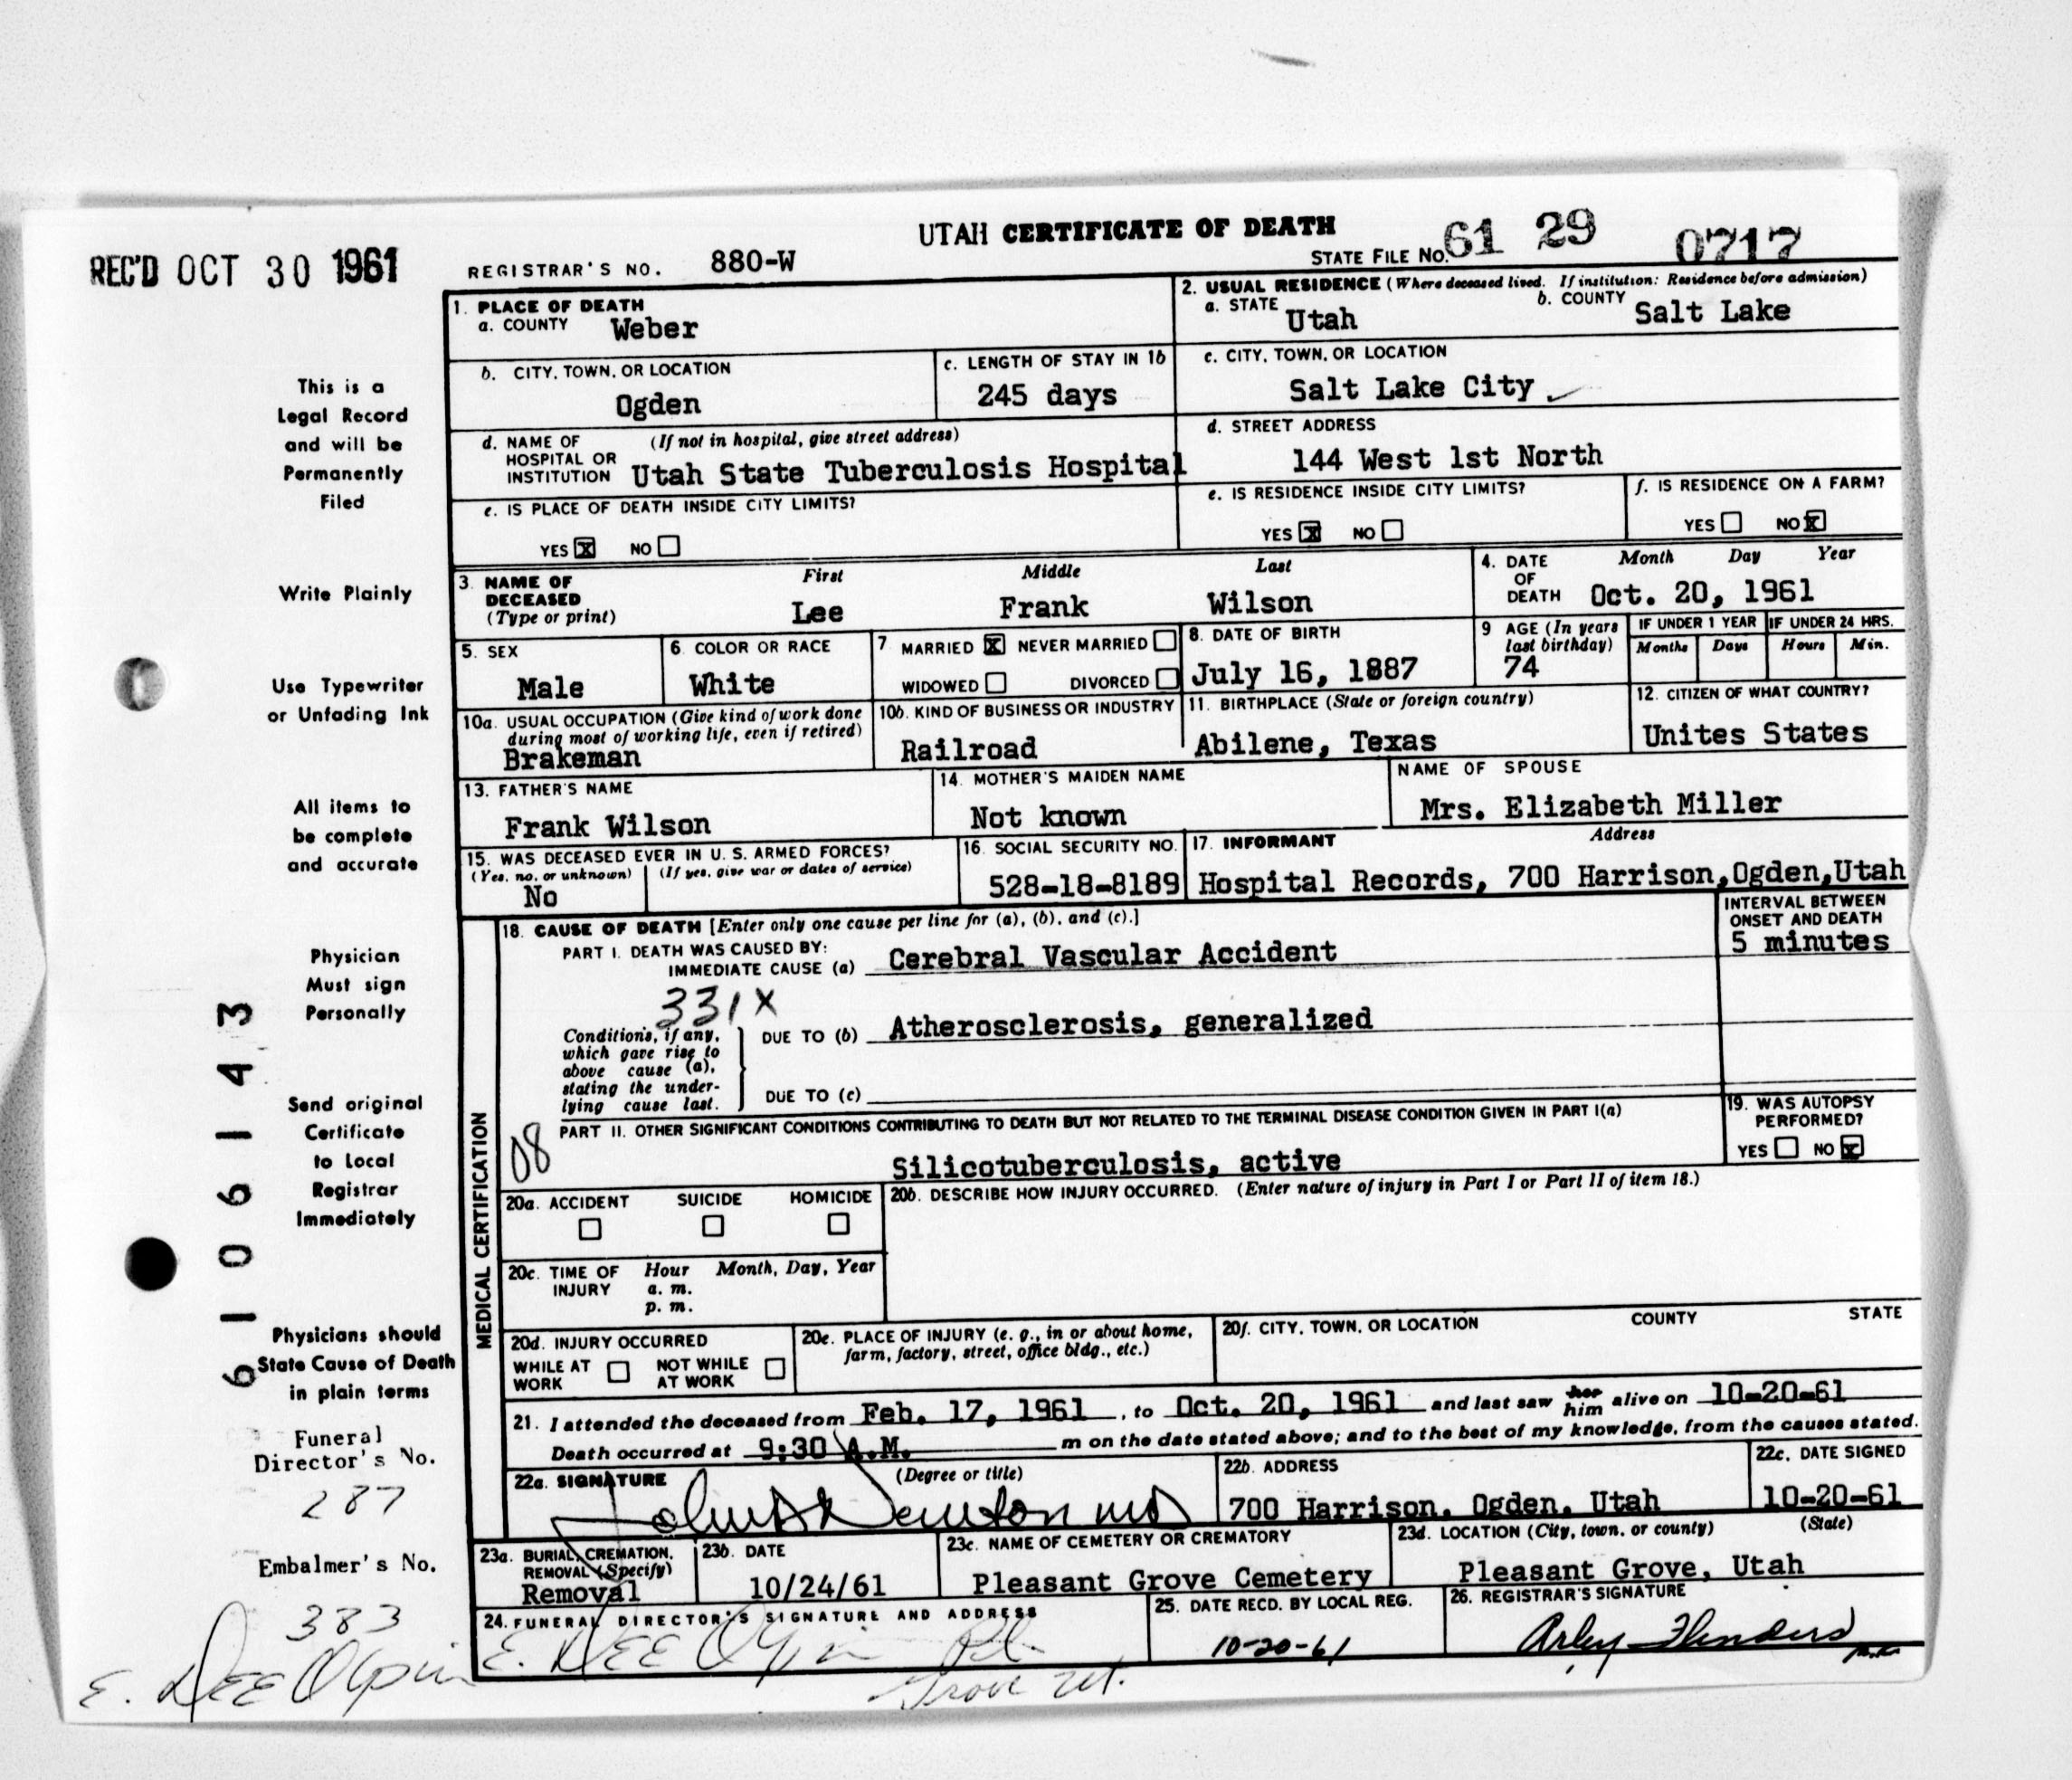 UTAH CERTIFICATE OF DEATH
REC'D OCT 30 1961
REGISTRAR'S NO. 880-W
STATE FILE NO. 61 29 0717
1. PLACE OF DEATH
a. COUNTY Weber
2. USUAL RESIDENCE (Where deceased lived. If institution: Residence before admission)
a. STATE Utah b. COUNTY Salt Lake
b. CITY, TOWN, OR LOCATION Ogden
c. LENGTH OF STAY IN 1b 245 days
c. CITY, TOWN, OR LOCATION
Salt Lake City
d. NAME OF HOSPITAL OR INSTITUTION (If not in hospital, give street address)
Utah State Tuberculosis Hospital
d. STREET ADDRESS
144 West 1st North
e. IS PLACE OF DEATH INSIDE CITY LIMITS?
YES X NO
e. IS RESIDENCE INSIDE CITY LIMITS?
YES X NO
f. IS RESIDENCE ON A FARM?
YES NO X
3. NAME OF DECEASED (Type or print)
First Middle Last
Lee Frank Wilson
4. DATE OF DEATH Month Day Year
Oct. 20, 1961
5. SEX
Male
6. COLOR OR RACE
White
7 MARRIED X NEVER MARRIED
WIDOWED DIVORCED
8. DATE OF BIRTH
July 16, 1887
9 AGE (In years last birthday)
74
IF UNDER 1 YEAR
Months Days
IF UNDER 24 HRS.
Hours Min.
10a. USUAL OCCUPATION (Give kind of work done during most of working life, even if retired)
Brakeman
10b. KIND OF BUSINESS OR INDUSTRY
Railroad
11. BIRTHPLACE (State or foreign country)
Abilene, Texas
12. CITIZEN OF WHAT COUNTRY?
Unites States
13. FATHER'S NAME
Frank Wilson
14. MOTHER'S MAIDEN NAME
Not known
NAME OF SPOUSE
Mrs. Elizabeth Miller
15. WAS DECEASED EVER IN U. S. ARMED FORCES?
(Yes, no, or unknown) (If yes, give war or dates of service)
No
16. SOCIAL SECURITY NO.
528-18-8189
17. INFORMANT Address
Hospital Records, 700 Harrison,Ogden,Utah
MEDICAL CERTIFICATION
18. CAUSE OF DEATH [Enter only one cause per line for (a), (b), and (c).]
INTERVAL BETWEEN ONSET AND DEATH
PART I. DEATH WAS CAUSED BY:
IMMEDIATE CAUSE (a) Cerebral Vascular Accident 5 minutes
331X
Conditions, if any, which gave rise to above cause (a), stating the underlying cause last.
DUE TO (b) Atherosclerosis, generalized
DUE TO (c)
08
PART II. OTHER SIGNIFICANT CONDITIONS CONTRIBUTING TO DEATH BUT NOT RELATED TO THE TERMINAL DISEASE CONDITION GIVEN IN PART I(a)
Silicotuberculosis, active
19. WAS AUTOPSY PERFORMED?
YES NO X
20a. ACCIDENT SUICIDE HOMICIDE
20b. DESCRIBE HOW INJURY OCCURRED. (Enter nature of injury in Part I or Part II of item 18.)
20c. TIME OF INJURY Hour Month, Day, Year
a. m.
p. m.
20d. INJURY OCCURRED
WHILE AT WORK NOT WHILE AT WORK
20e. PLACE OF INJURY (e. g., in or about home, farm, factory, street, office bldg., etc.)
20f. CITY, TOWN, OR LOCATION COUNTY STATE
21. I attended the deceased from Feb. 17, 1961, to Oct. 20, 1961 and last saw her him alive on 10-20-61
Death occurred at 9:30 A.M. m on the date stated above; and to the best of my knowledge, from the causes stated.
22a. SIGNATURE (Degree or title)
Newton MD
22b. ADDRESS
700 Harrison, Ogden, Utah
22c. DATE SIGNED
10-20-61
23a. BURIAL, CREMATION, REMOVAL (Specify)
Removal
23b. DATE
10/24/61
23c. NAME OF CEMETERY OR CREMATORY
Pleasant Grove Cemetery
23d. LOCATION (City, town, or county) (State)
Pleasant Grove, Utah
24. FUNERAL DIRECTOR'S SIGNATURE AND ADDRESS
E. Dee Olpin Pl.
Grove Ut.
25. DATE RECD. BY LOCAL REG.
10-20-61
26. REGISTRAR'S SIGNATURE
Arley Flinders
This is a
Legal Record
and will be
Permanently
Filed
Write Plainly
Use Typewriter
or Unfading Ink
All items to
be complete
and accurate
Physician
Must sign
Personally
Send original
Certificate
to Local
Registrar
Immediately
Physicians should
State Cause of Death
in plain terms
Funeral
Director's No.
287
Embalmer's No.
383
E. Dee Olpin
61 06143